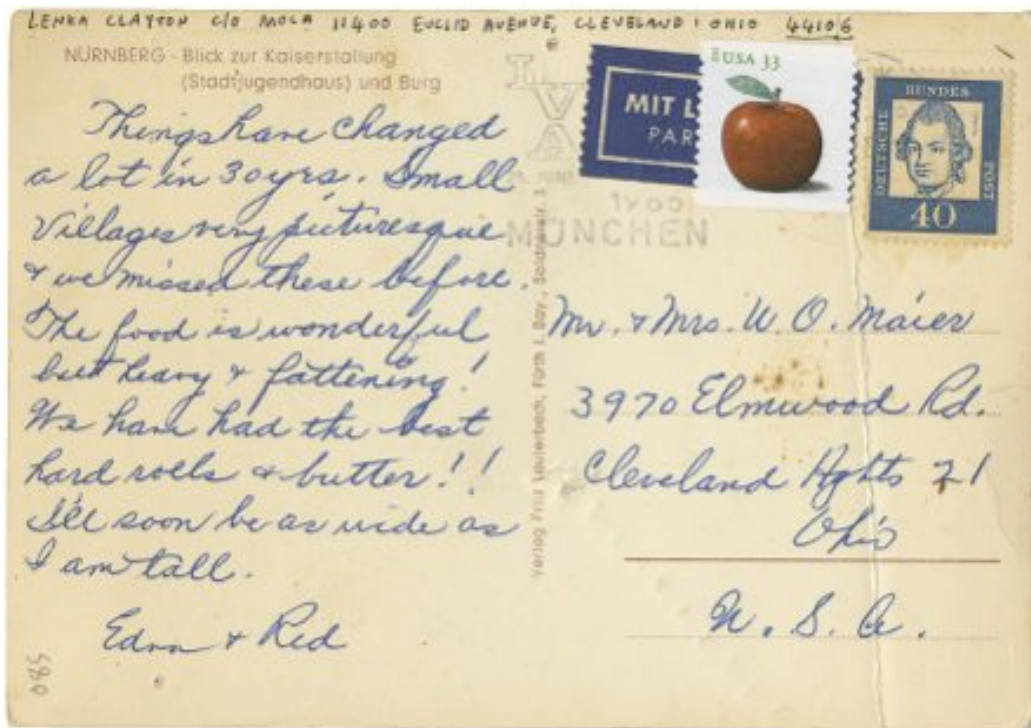 LENKA CLAYTON C/O MOCA 11400 EUCLID AVENUE, CLEVELAND, OHIO 44106
NÜRNBERG - Blick zur Kaiserstallung
(Stadtjugendhaus) und Burg
Things have changed
a lot in 30 yrs. Small
Villages very picturesque
& we missed these before.
The food is wonderful
but heavy & fattening!
We have had the best
hard rolls & butter!!
I'll soon be as wide as
I am tall.
Edna & Red
580
LVA
MÜNCHEN
MIT L
PAR
USA 33
DEUTSCHE
BUNDES
POST
40
Verlag Fritz Lauterbach, Fürth i. Bay.,
Mr. & Mrs. W. O. Maier
3970 Elmwood Rd.
Cleveland Hghts 21
Ohio
U. S. A.